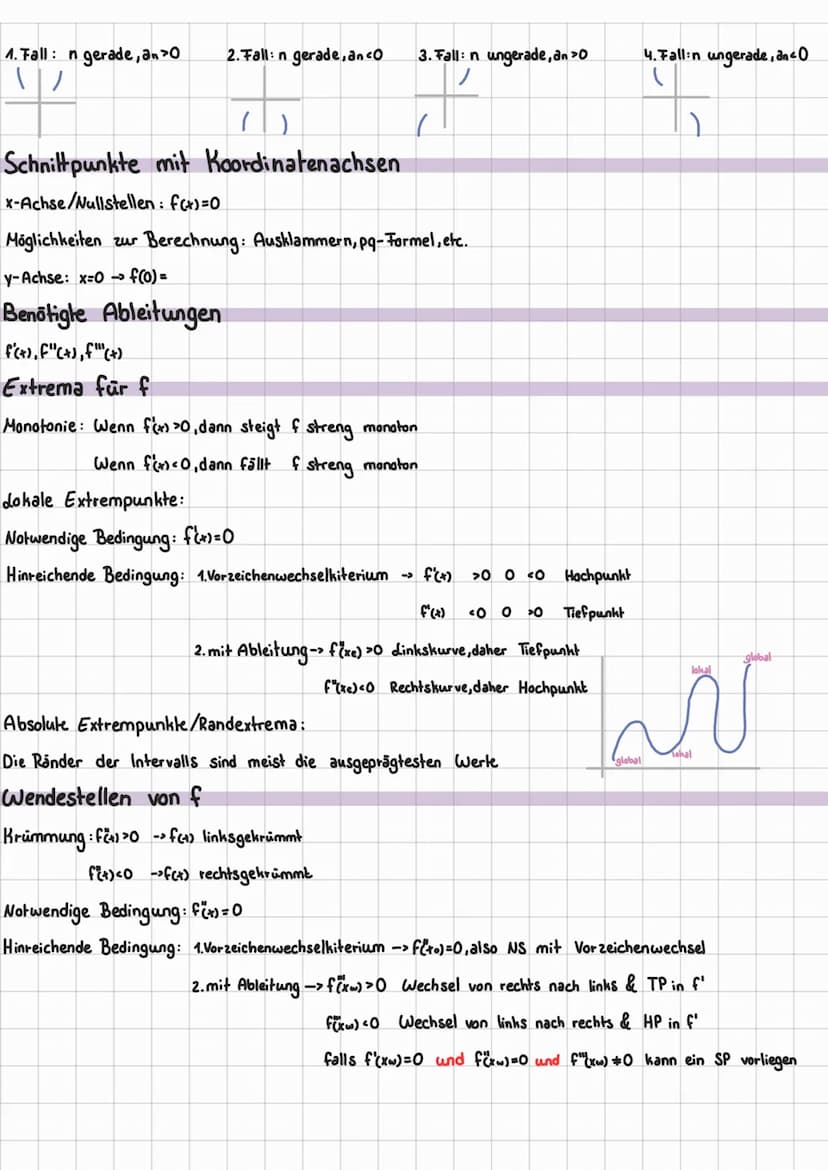 1. Fall: n gerade, an>0 2. Fall: n gerade, an<0 3. Fall: n ungerade, an>0 4. Fall: n ungerade, an<0
Schnittpunkte mit Koordinatenachsen
x-Achse/Nullstellen: f(x)=0
Möglichkeiten zur Berechnung: Ausklammern, pq-Formel, etc.
y-Achse: x=0 → f(0)=
Benötigte Ableitungen
f'(x), f''(x), f'''(x)
Extrema für f
Monotonie: Wenn f'(x)>0, dann steigt f streng monoton
Wenn f'(x)<0, dann fällt f streng monoton
Lokale Extrempunkte:
Notwendige Bedingung: f'(x)=0
Hinreichende Bedingung: 1. Vorzeichenwechselkiterium → f'(x) >0 0 <0 Hochpunkt
f'(x) <0 0 >0 Tiefpunkt
2. mit Ableitung → f''(xe)>0 Linkskurve, daher Tiefpunkt
f''(xe)<0 Rechtskurve, daher Hochpunkt
global
lokal
Absolute Extrempunkte/Randextrema:
Die Ränder der Intervalls sind meist die ausgeprägtesten Werte
lokal
global
Wendestellen von f
Krümmung: f''(x)>0 → f(x) linksgekrümmt
f''(x)<0 → f(x) rechtsgekrümmt
Notwendige Bedingung: f''(x)=0
Hinreichende Bedingung: 1. Vorzeichenwechselkiterium → f''(x0)=0, also NS mit Vorzeichenwechsel
2. mit Ableitung → f'''(xw)>0 Wechsel von rechts nach links & TP in f'
f'''(xw)<0 Wechsel von links nach rechts & HP in f'
falls f'(xw)=0 und f''(xw)=0 und f'''(xw)≠0 kann ein SP vorliegen